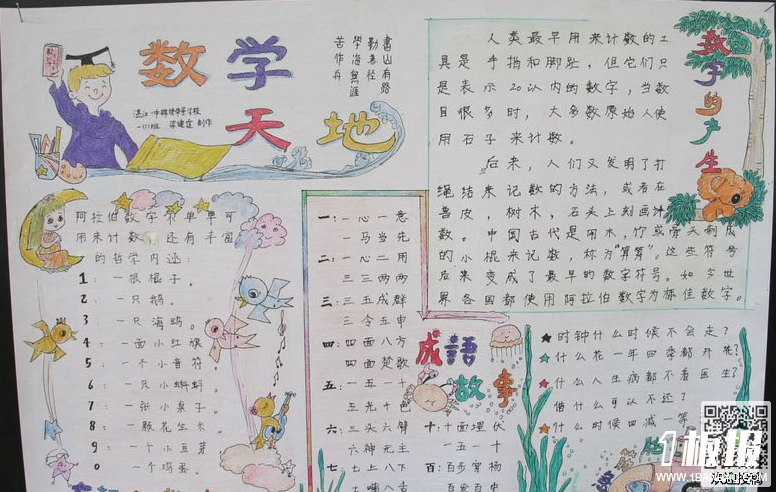 数学天地
書山有路
勤為径
學海無涯
苦作舟
数字的产生
人类最早用来计数的工
具是手指和脚趾，但它们只
是表示20以内的数字，当数
目很多时，大多数原始人使
用石子来计数。
后来，人们又发明了打
绳结来记数的方法，或者在
兽皮，树木，石头上刻画计
数。中国古代是用木，竹或骨头制成
的小棍来记数，称为“算筹”。这些符号
后来变成了最早的数字符号。如今世
界各国都使用阿拉伯数字为标准数字。
阿拉伯数字不单单可
用来计数，还有丰富
的哲学内涵：
1：一根棍子。
2：一只鹅。
3：一只海鸥。
4：一面小红旗
5：一个小音符。
6：一只小蝌蚪。
7：一张小桌子。
8：一颗花生米。
9：一个小豆芽
0：一个鸡蛋。
一：一心一意
一马当先
二：一心二用
三三两两
三：三五成群
三令五申
四：四面八方
四面楚歌
五：一五一十
五光十色
六：三头六臂
六神无主
七：七上八下
成語故事
十：十面埋伏
一五一十
百：百步穿杨
百发百中
时钟什么时候不会走？
什么花一年四季都开花？
什么人生病都不看医生？
借什么可以不还？
什么时候四减一等
1板报
WWW.1BANBAO.COM